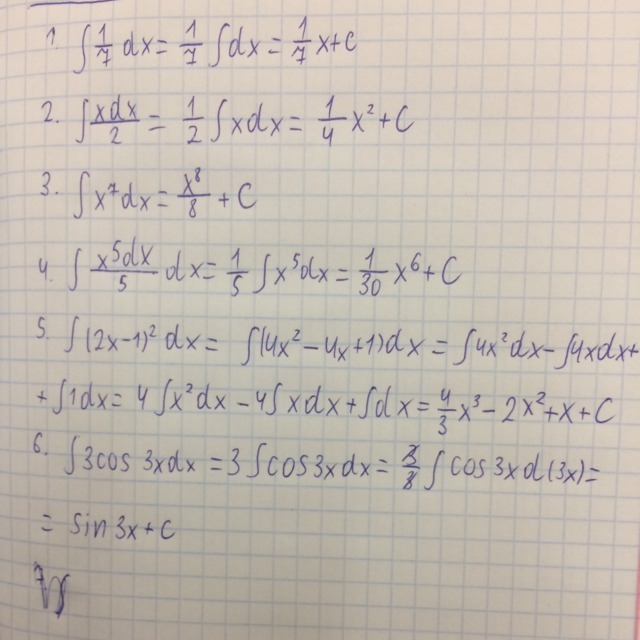 1. ∫ 1/7 dx = 1/7 ∫ dx = 1/7 x + C
2. ∫ xdx/2 = 1/2 ∫ x dx = 1/4 x² + C
3. ∫ x⁷ dx = x⁸/8 + C
4. ∫ x⁵dx/5 dx = 1/5 ∫ x⁵ dx = 1/30 x⁶ + C
5. ∫ (2x-1)² dx = ∫ (4x² - 4x + 1) dx = ∫ 4x² dx - ∫ 4x dx +
+ ∫ 1 dx = 4 ∫ x² dx - 4 ∫ x dx + ∫ dx = 4/3 x³ - 2x² + x + C
6. ∫ 3cos 3x dx = 3 ∫ cos 3x dx = 3/3 ∫ cos 3x d(3x) =
= sin 3x + C
7